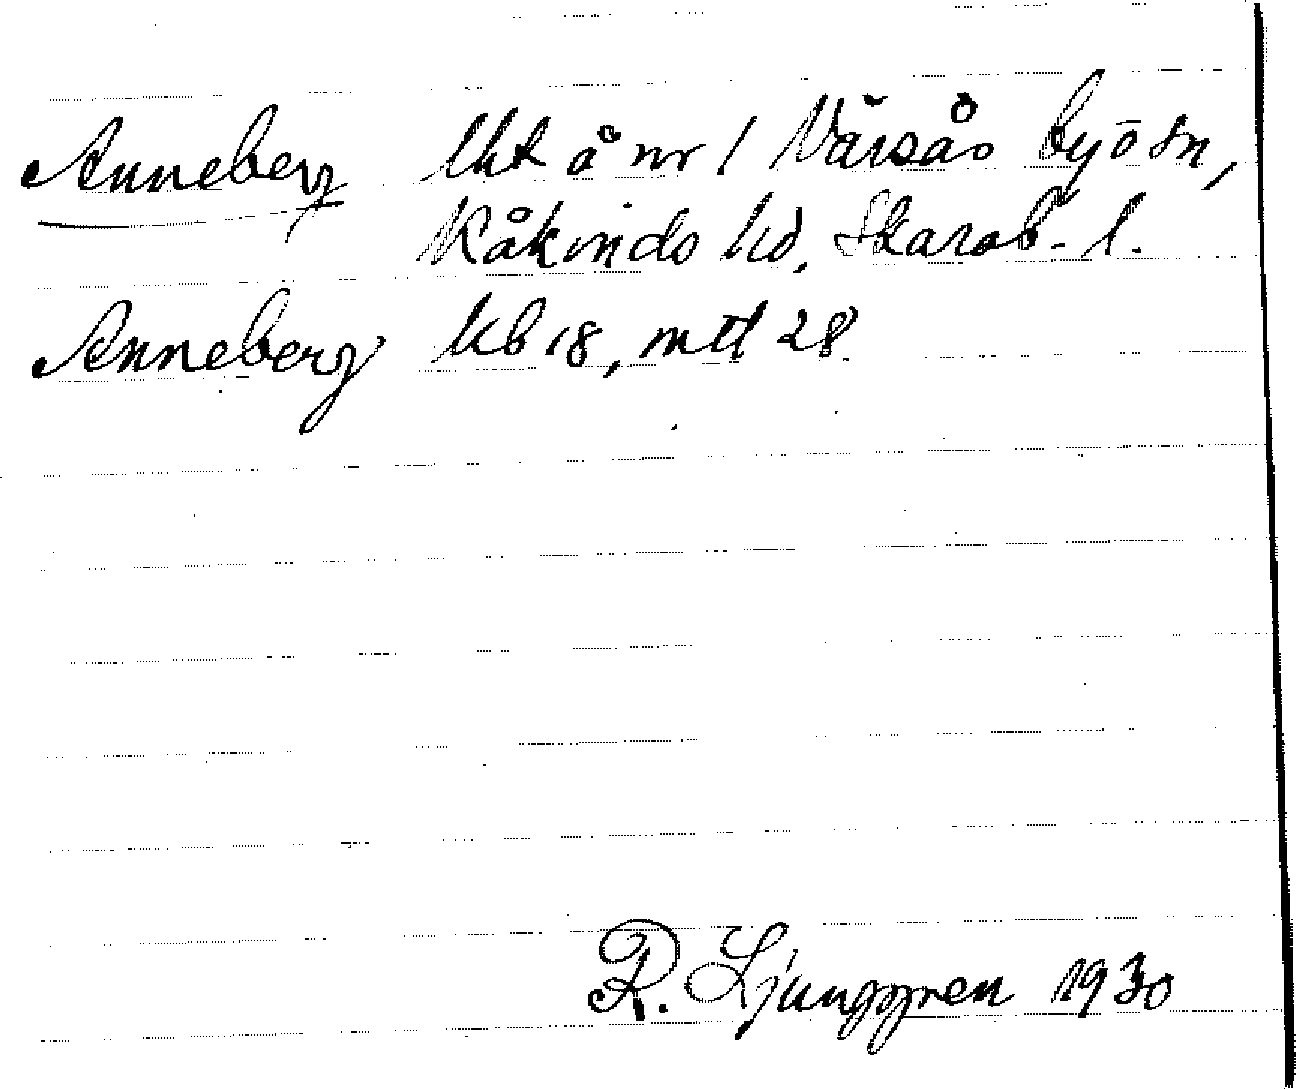 Anneberg lht å nr 1 Värsås by o sn,
Kåkinds hd, Skarab. l.
Anneberg kb 18, mtl 28.
R. Ljunggren 1930